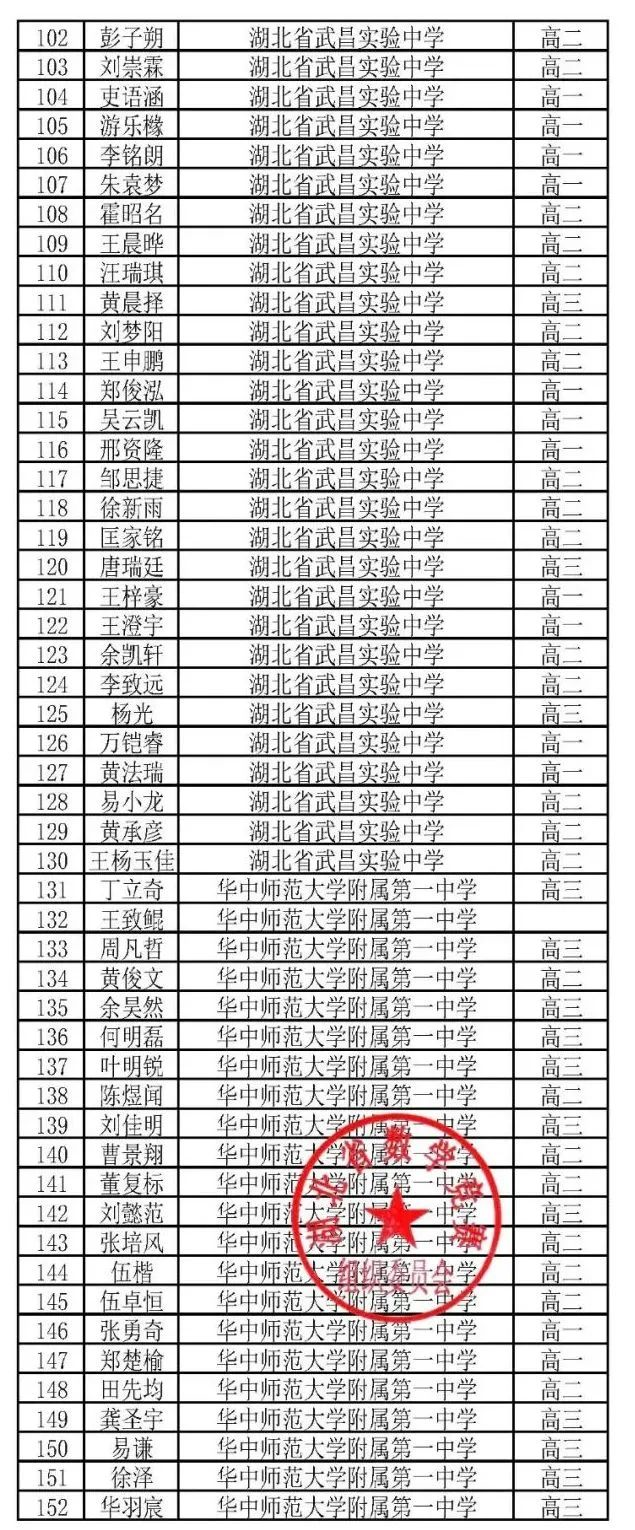 102 彭子朔 湖北省武昌实验中学 高二
103 刘崇霖 湖北省武昌实验中学 高二
104 吏语涵 湖北省武昌实验中学 高一
105 游乐橼 湖北省武昌实验中学 高一
106 李铭朗 湖北省武昌实验中学 高一
107 朱袁梦 湖北省武昌实验中学 高一
108 霍昭名 湖北省武昌实验中学 高二
109 王晨晔 湖北省武昌实验中学 高二
110 汪瑞琪 湖北省武昌实验中学 高二
111 黄晨择 湖北省武昌实验中学 高三
112 刘梦阳 湖北省武昌实验中学 高二
113 王申鹏 湖北省武昌实验中学 高二
114 郑俊泓 湖北省武昌实验中学 高一
115 吴云凯 湖北省武昌实验中学 高一
116 邢资隆 湖北省武昌实验中学 高一
117 邹思捷 湖北省武昌实验中学 高二
118 徐新雨 湖北省武昌实验中学 高二
119 匡家铭 湖北省武昌实验中学 高二
120 唐瑞廷 湖北省武昌实验中学 高三
121 王梓豪 湖北省武昌实验中学 高一
122 王澄宇 湖北省武昌实验中学 高一
123 余凯轩 湖北省武昌实验中学 高二
124 李致远 湖北省武昌实验中学 高二
125 杨光 湖北省武昌实验中学 高三
126 万铠睿 湖北省武昌实验中学 高一
127 黄法瑞 湖北省武昌实验中学 高一
128 易小龙 湖北省武昌实验中学 高二
129 黄承彦 湖北省武昌实验中学 高二
130 王杨玉佳 湖北省武昌实验中学 高二
131 丁立奇 华中师范大学附属第一中学 高三
132 王致鲲 华中师范大学附属第一中学
133 周凡哲 华中师范大学附属第一中学 高三
134 黄俊文 华中师范大学附属第一中学 高二
135 余昊然 华中师范大学附属第一中学 高三
136 何明磊 华中师范大学附属第一中学 高三
137 叶明锐 华中师范大学附属第一中学 高三
138 陈煜闻 华中师范大学附属第一中学 高二
139 刘佳明 华中师范大学附属第一中学 高三
140 曹景翔 华中师范大学附属第一中学 高二
141 董复标 华中师范大学附属第一中学 高二
142 刘懿范 华中师范大学附属第一中学 高三
143 张培风 华中师范大学附属第一中学 高二
144 伍楷 华中师范大学附属第一中学 高二
145 伍卓恒 华中师范大学附属第一中学 高二
146 张勇奇 华中师范大学附属第一中学 高一
147 郑楚榆 华中师范大学附属第一中学 高一
148 田先均 华中师范大学附属第一中学 高二
149 龚圣宇 华中师范大学附属第一中学 高三
150 易谦 华中师范大学附属第一中学 高三
151 徐泽 华中师范大学附属第一中学 高三
152 华羽宸 华中师范大学附属第一中学 高三
湖北省数学竞赛
组织委员会